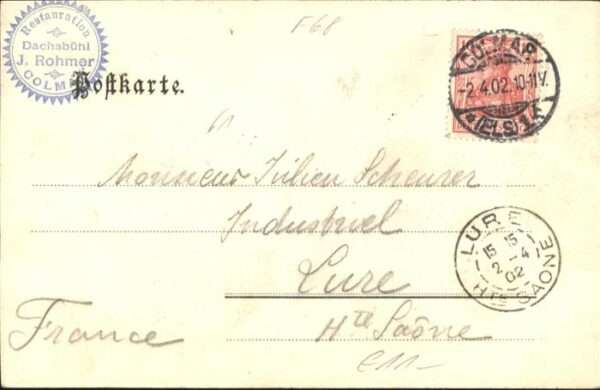 Restauration
Dachsbühl
J. Rohmer
COLMAR
F68
Postkarte.
COLMAR
-2.4.02.10-11V.
*(ELS)1*
Monsieur Julien Scheurer
Industriel
Lure
Hte Saône
France
LURE
15 15
2 - 4
02
Hte SAONE